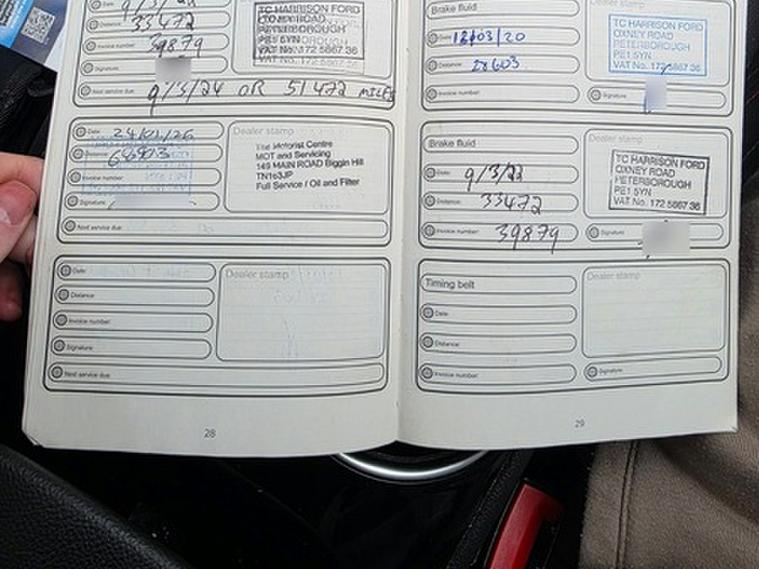 Date:
Distance: 33472
Invoice number: 39879
Signature:
Next service due: 9/3/24 OR 51472 MILES
TC HARRISON FORD
OXNEY ROAD
PETERBOROUGH
PE1 5YN
VAT No. 172 5867 36
Date: 24/01/26
Distance:
Invoice number:
Signature:
Next service due:
Dealer stamp
The Motorist Centre
MOT and Servicing
149 MAIN ROAD Biggin Hill
TN163JP
Full Service / Oil and Filter
Date:
Distance:
Invoice number:
Signature:
Next service due:
Dealer stamp
28
Brake fluid
Date: 12/03/20
Distance: 28603
Invoice number:
Dealer stamp
TC HARRISON FORD
OXNEY ROAD
PETERBOROUGH
PE1 5YN
VAT No. 172 5867 36
Signature:
Brake fluid
Date: 9/3/22
Distance: 33472
Invoice number: 39879
Dealer stamp
TC HARRISON FORD
OXNEY ROAD
PETERBOROUGH
PE1 5YN
VAT No. 172 5867 36
Signature:
Timing belt
Date:
Distance:
Invoice number:
Dealer stamp
Signature:
29